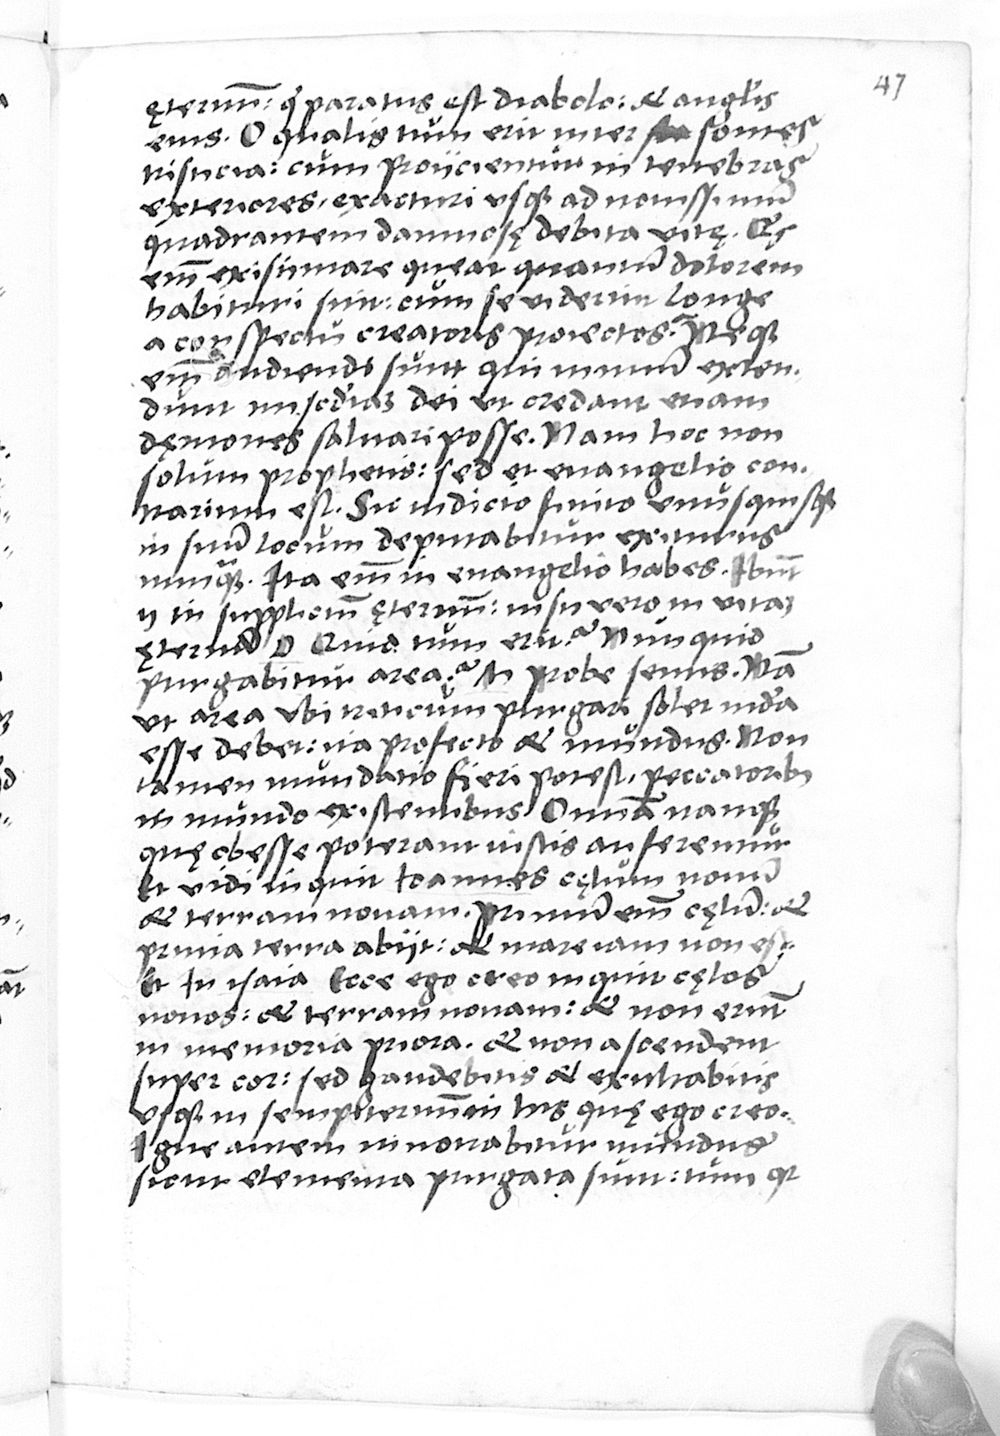 47
ęternū: q̇ paratus est diabolo: & angl̃is
eius. O qualis tum erit inter sontes
tristicia: cum proiicientur in tenebras
exteriores, exacturi usq₃ ad nouissimū
quadrantem damnosę debita vitę. Q̇s
em̄ existimare queat quantū dolorem
habituri sint: cum se viderint longe
a conspectu creatoris proiectos. Neq₃
em̄ audiendi sunt qui nimiū exten-
dunt misc̄dia₃ dei ut credant etiam
dęmones saluari posse. Nam hoc non
solum prophetis: sed et euangelio con-
trarium est. Sic iudicio finito vnusquisq₃
in suū locum deputabitur exiturus
nunq̃₃. Ita em̄ in euangelio habes. Ibūt
ij in suppliciū̄ ęternū: iusti vero in vita₃
ęternā O Quid tum erit? Nunquid
purgabitur area? At probe sentis. Nā
ut area vbi triticum purgari solet mūda
esse debet: ita profecto & mundus. Non
tamen mundatio fieri potest, peccatorib₃
in mundo existentibus Omnia nanq₃
quę obesse poterant iustis auferentur
Et vidi inquit Ioannes cęlum nouū
& terram nouam. Primū em̄ cęlū: &
prima terra abijt: & mare iam non est.
Et in isaia Ecce ego creo inquit cęlos
nouos: & terram nouam: & non erūt
in memoria priora. & non ascendent
super cor: sed gaudebitis & exultabitis
vsq₃ in sempiternū in his quę ego creo.
Igne autem innouabitur mundus
sicut elementa purgata sunt: tum q₃